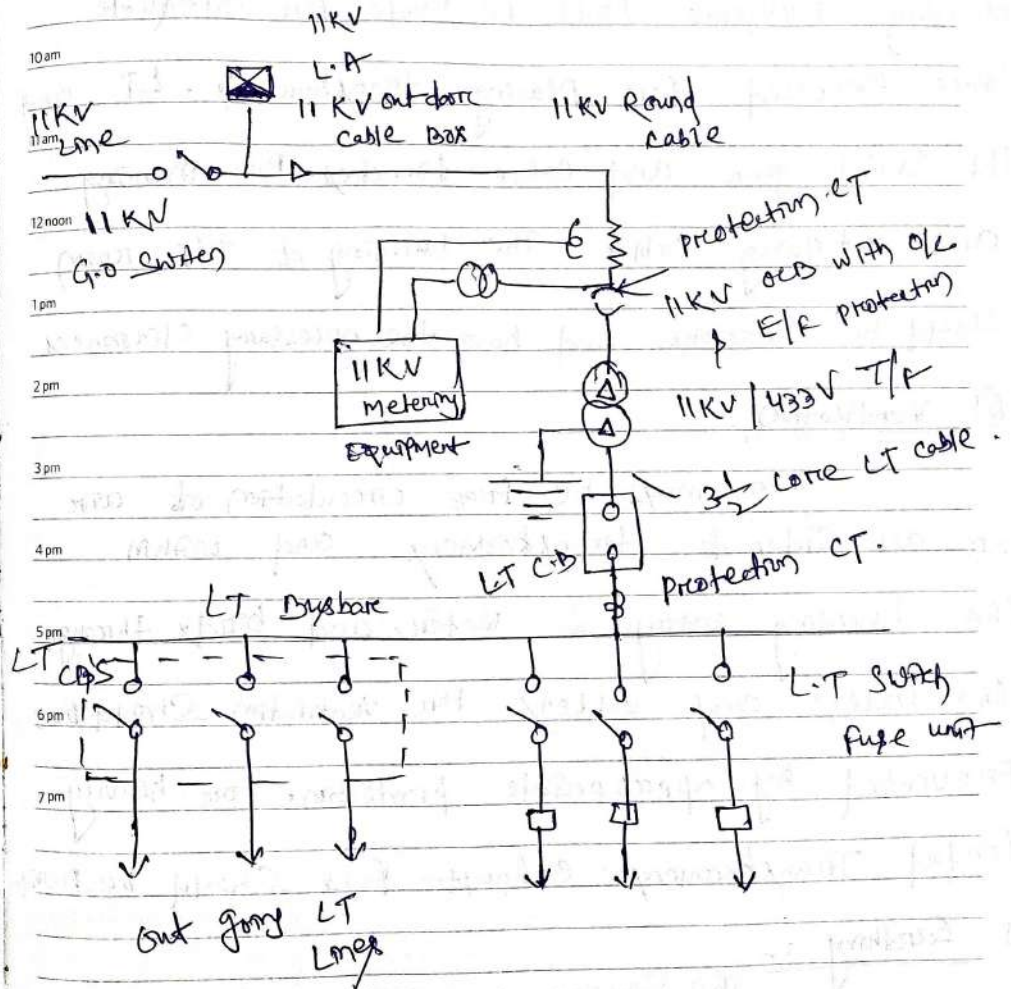 11KV
10 am
L.A
11 KV outdoore Cable Box
11KV Round Cable
11KV Line
11 am
12 noon
11 KV G.O Switch
protection CT
1 pm
11KV OCB with O/L
E/F protection
2 pm
11KV metering
equipment
11KV / 433V T/F
3 pm
3 1/2 Core LT cable.
4 pm
LT C.B
protection CT.
LT Busbare
5 pm
LT
CBS
6 pm
L.T Switch fuse unit
7 pm
Out going LT Lines